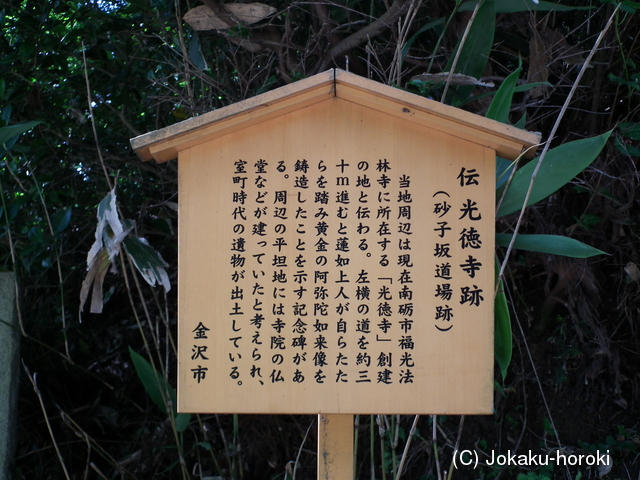 伝 光徳寺跡
（砂子坂道場跡）
当地周辺は現在南砺市福光法
林寺に所在する「光徳寺」創建
の地と伝わる。左横の道を約三
十ｍ進むと蓮如上人が自らたた
らを踏み黄金の阿弥陀如来像を
鋳造したことを示す記念碑があ
る。周辺の平坦地には寺院の仏
堂などが建っていたと考えられ、
室町時代の遺物が出土している。
金沢市
(C) Jokaku-horoki